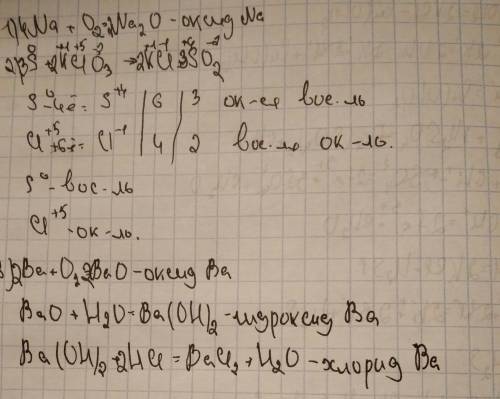 1) 4Na + O₂ = 2Na₂O - оксид Na
2) 3S⁰ + 2K⁺¹Cl⁺⁵O₃⁻² → 2K⁺¹Cl⁻¹ 3S⁺⁴O₂⁻²
S⁰ - 4ē = S⁺⁴ | 6 | 3 ок-ся вос-ль
Cl⁺⁵ + 6ē = Cl⁻¹ | 4 | 2 ок-ль.
S⁰ - вос-ль
Cl⁺⁵ - ок-ль.
3) 2Ba + O₂ 2BaO - оксид Ba
BaO + H₂O = Ba(OH)₂ - гидроксид Ba
Ba(OH)₂ + 2HCl = BaCl₂ + H₂O - хлорид Ba